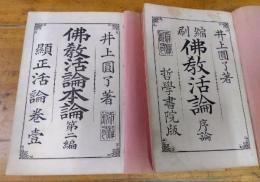 井上圓了著
縮刷
佛教活論
序論
哲學書院版
井上圓了著
佛教活論本論
第二編
顯正活論
卷壹